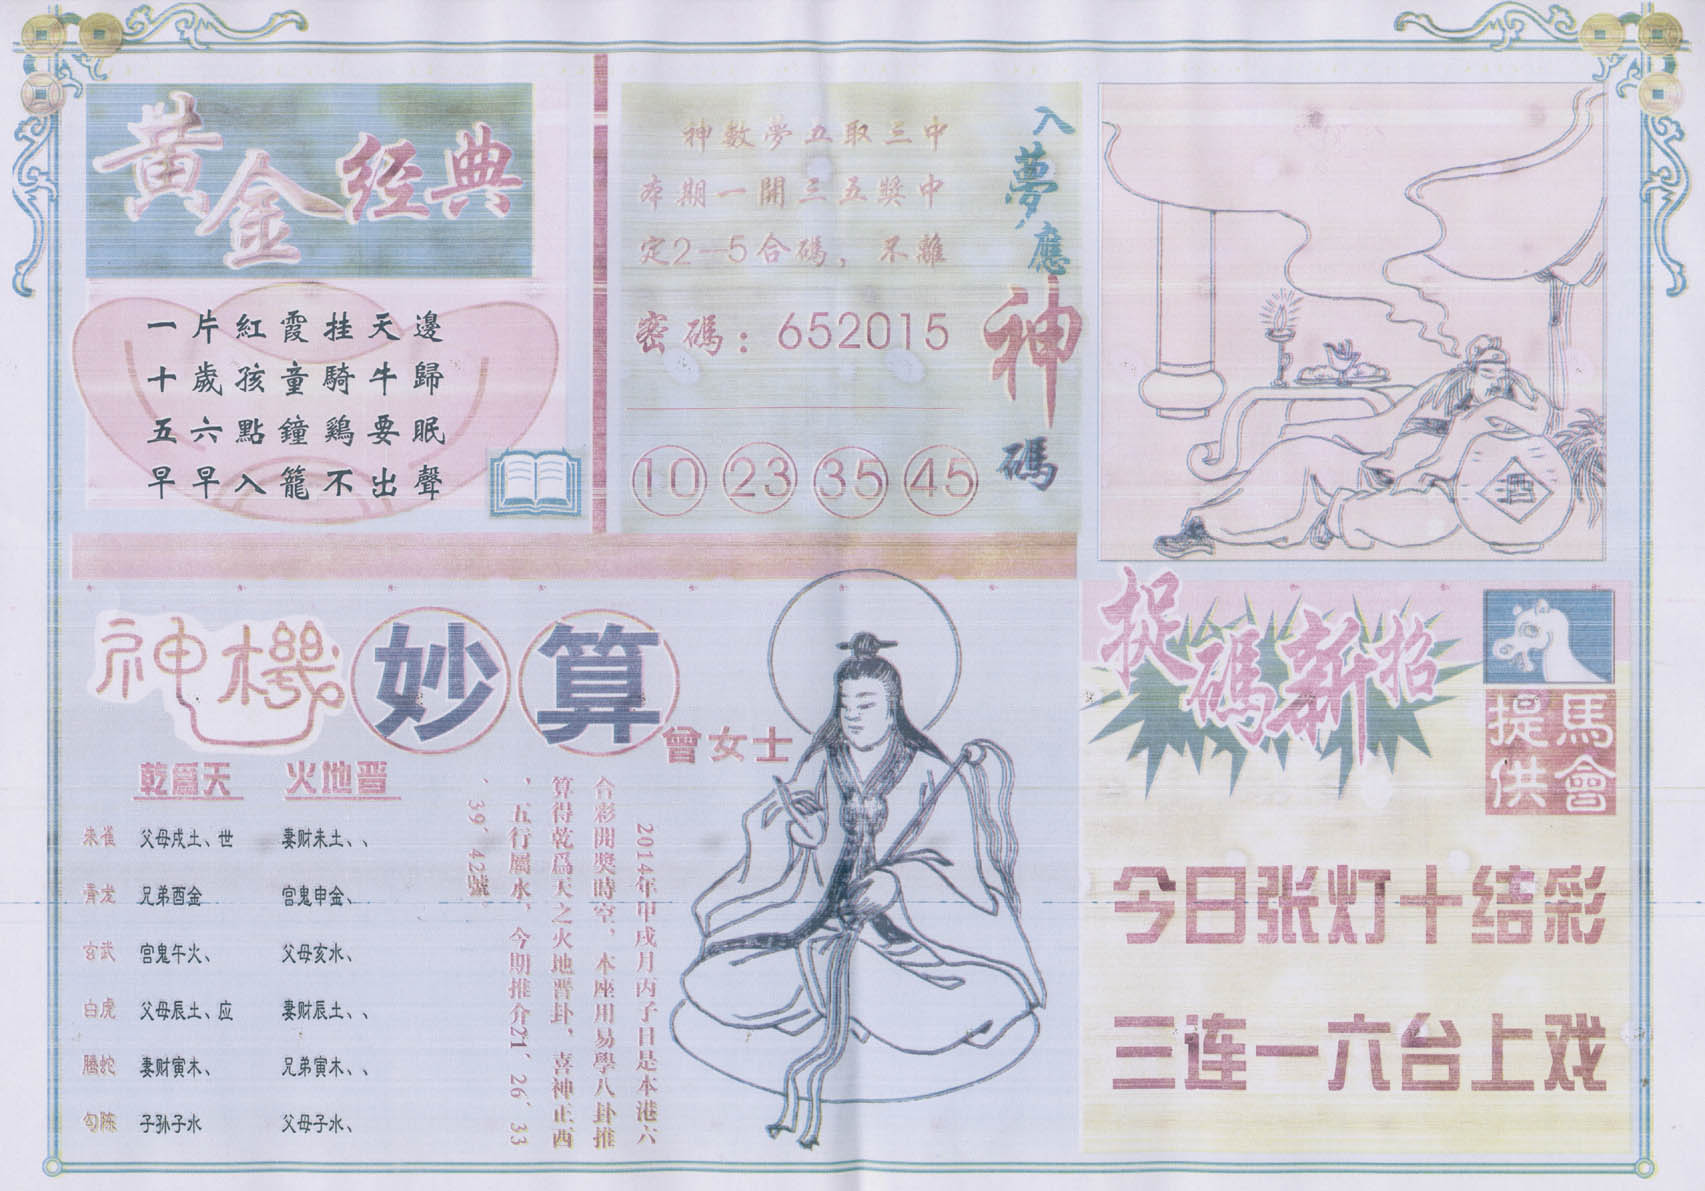 黃金经典
一片紅霞挂天邊
十歲孩童騎牛歸
五六點鐘鷄要眠
早早入籠不出聲
神數夢五取三中
本期一開三五獎中
定2—5合碼，不離
密碼：652015
10 23 35 45
入夢應神碼
酒
神機妙算
曾女士
乾爲天 火地晋
朱雀 父母戌土、世 妻财未土、、
青龙 兄弟酉金 宫鬼申金、
玄武 宫鬼午火、 父母亥水、
白虎 父母辰土、应 妻财辰土、、
腾蛇 妻财寅木、 兄弟寅木、、
勾陈 子孙子水 父母子水、
2014年甲戌月丙子日是本港六
合彩開獎時空，本座用易學八卦推
算得乾爲天之火地晋卦，喜神正西
，五行屬水，今期推介21、26、33
、39、42號。
捉碼新招
馬會
提供
今日张灯十结彩
三连一六台上戏